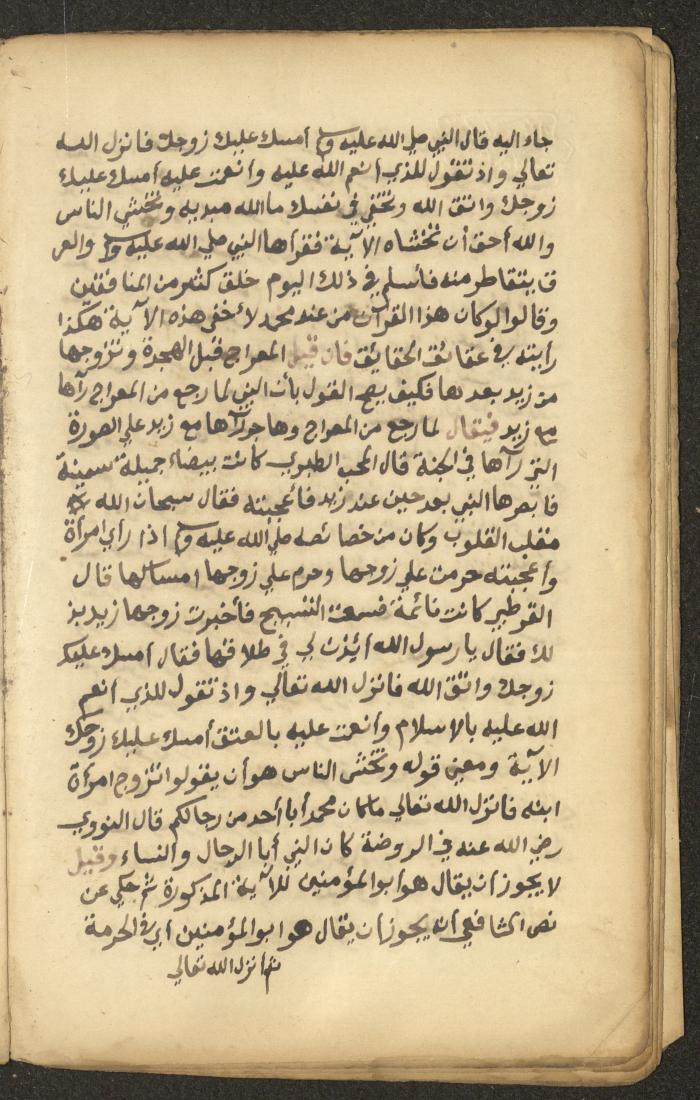 جاء اليه قال النبي صلي الله عليه وسلم أمسك عليك زوجك فانزل الله
تعالي واذ تقول للذي أنعم الله عليه وأنعمت عليه أمسك عليك
زوجك واتق الله وتخفي في نفسك ما الله مبديه وتخشي الناس
والله أحق أن تخشاه الآية فقرأها النبي صلي الله عليه وسلم والعر
ق يتقاطر منه فأسلم في ذلك اليوم خلق كثير من المنافقين
وقالوا لو كان هذا القرآن من عند محمد لأخفي هذه الآية هكذا
رأيته في عقائق الحقايق فان قيل المعراج قبل الهجرة وتزوجها
من زيد بعدها فكيف يصح القول بأن النبي لما رجع من المعراج رآها
مع زيد فيقال لما رجع من المعراج وهاجر رآها مع زيد علي الصورة
التي رآها في الجنة قال المحب الطبري كانت بيضاء جميلة سمينة
فابصرها النبي بعد حين عند زيد فأعجبته فقال سبحان الله
مقلب القلوب وكان من خصائصه صلي الله عليه وسلم اذا رأي امرأة
وأعجبته حرمت علي زوجها وحرم علي زوجها امساكها قال
القرطبي كانت نائمة فسمعت التسبيح فأخبرت زوجها زيد بذ
لك فقال يا رسول الله ائذن لي في طلاقها فقال امسك عليك
زوجك واتق الله فانزل الله تعالي واذ تقول للذي أنعم
الله عليه بالاسلام وأنعمت عليه بالعتق أمسك عليك زوجك
الآية ومعني قوله وتخشي الناس هو أن يقولوا تزوج امرأة
ابنه فانزل الله تعالي ما كان محمد أبا أحد من رجالكم قال النووي
رضي الله عنه في الروضة كان النبي أبا الرجال والنساء وقيل
لا يجوز أن يقال هو أبو المؤمنين للآية المذكورة ثم حكي عن
نص الشافعي أنه يجوز أن يقال هو ابو المؤمنين أي في الحرمة
ثم أنزل الله تعالي